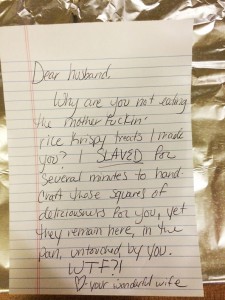 Dear husband,
Why are you not eating
the mother fuckin'
rice krispy treats I made
you? I SLAVED for
several minutes to hand-
craft those squares of
deliciousness for you, yet
they remain here, in the
pan, untouched by you.
WTF?!
♡ your wonderful wife